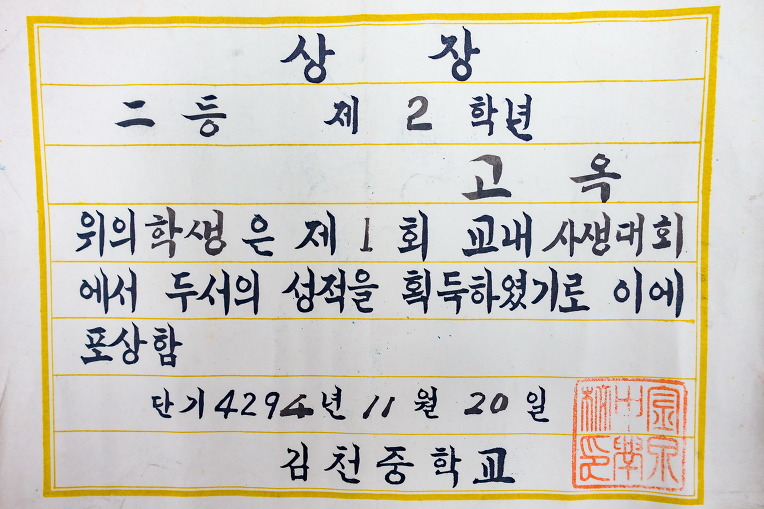 상 장
二 등 제 2 학년
고 옥
위의 학생은 제 1 회 교내 사생대회
에서 두서의 성적을 획득하였기로 이에
포상함
단기 4294년 11월 20일
김천중학교